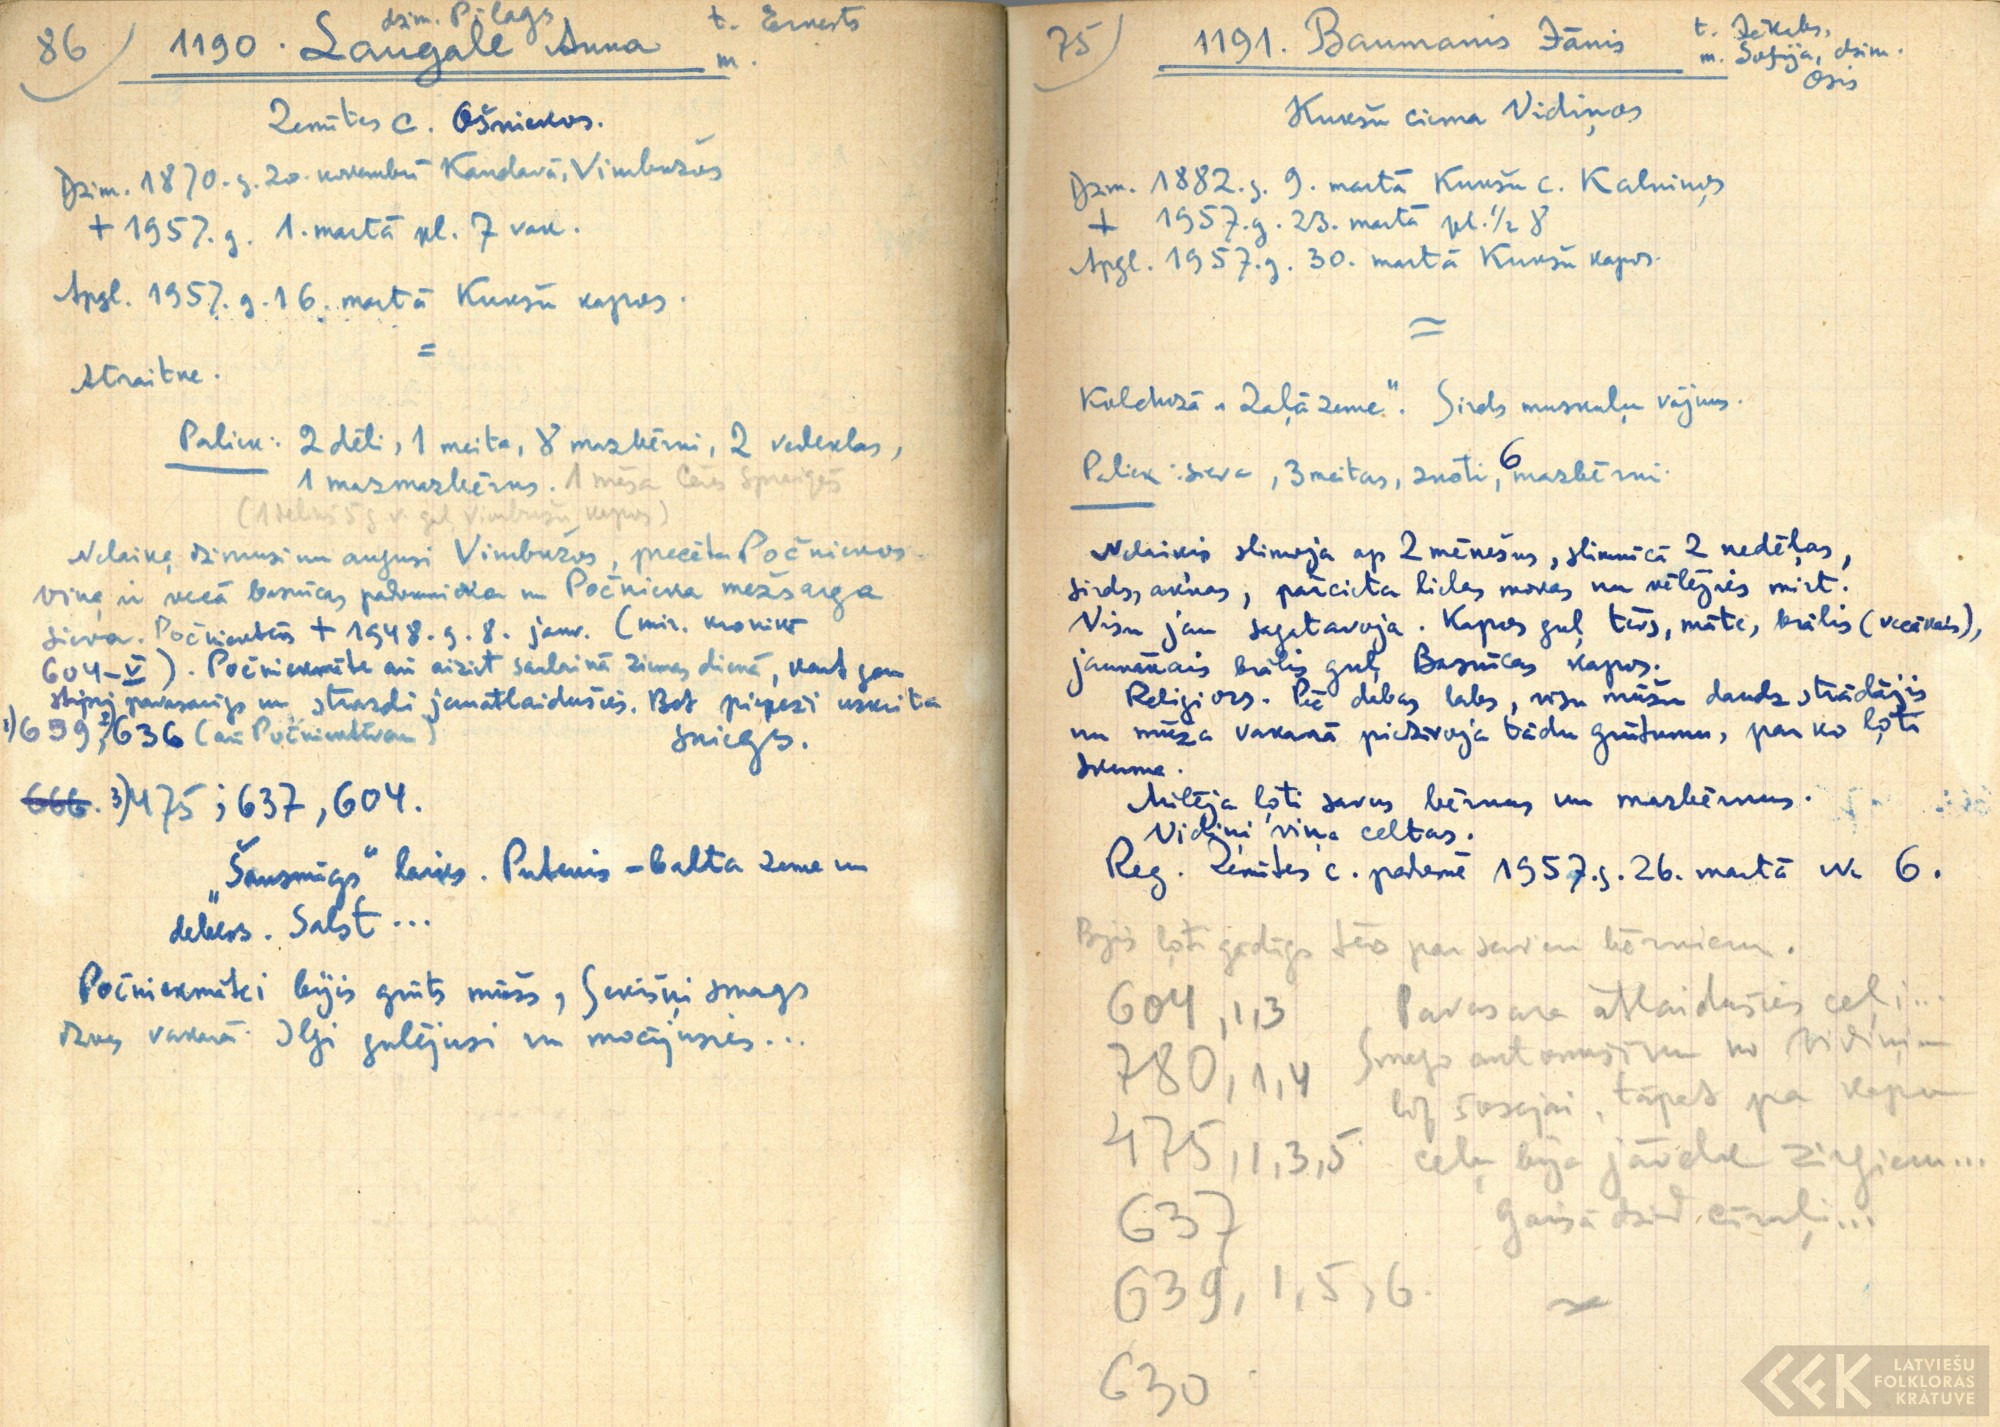 86
dzim. Pīlags,
1190. Laugale Anna
t. Ernests
m.
Zemītes c. Ošniekos.
Dzim. 1870. g. 20. novembrī Kandavā, Vimbužos
+ 1957. g. 1. martā pl. 7 vak.
Apgl. 1957. g. 16. martā Kukšu kapos.
=
Atraitne.
Paliek: 2 dēli, 1 meita, 8 mazbērni, 2 vedeklas,
1 mazmazbērns. 1 māsa
Nelaiķe dzimusi un augusi Vimbužos, precēta Počniekos.
Viņa ir vecā baznīcas padomnieka un Počnieka mežsarga
sieva. Počnieks + 1948. g. 8. janv. (mir. kronikā
604-V). Počniekmāte arī aiziet saulainā ziemas dienā, kaut gan
stipri pavasarīgs un strazdi jau atlaidušies. Bet piepeži uzkrita
sniegs.
1) 639, 2) 636 (arī Počniektēvam)
666. 3) 475; 637, 604.
"Šausmīgs" laiks. Putenis - balta zeme un
debess. Salst ...
Počniekmātei bijis grūts mūžs, sevišķi smags
dzīves vakarā. Ilgi gulējusi un mocījusies...
75
1191. Baumanis Jānis
t. Jēkabs,
m. Sofija, dzim.
Osis
Kukšu ciema Vidiņos
Dzim. 1882. g. 9. martā Kukšu c. Kalniņos
+ 1957. g. 23. martā pl. 1/2 8
Apgl. 1957. g. 30. martā Kukšu kapos.
=
Kolchozā "Zaļā zeme". Sirds muskuļu vājums.
Paliek: sieva, 3 meitas, znoti, 6 mazbērni.
Nelaiķis slimoja ap 2 mēnešus, slimnīcā 2 nedēļas,
sirds, aknas, pārcieta lielas mokas un vēlējies mirt.
Visu jau sagatavoja. Kapos guļ tēvs, māte, brālis (vecākais),
jaunākais brālis guļ Baznīcas kapos.
Religiozs. Pēc dabas labs, visu mūžu daudz strādājis
un mūža vakarā piedzīvoja tādu grūtumu, par ko ļoti
skuma.
Mīlēja ļoti savus bērnus un mazbērnus.
Vidiņi viņa celtas.
Reg. Zemītes c. padomē 1957. g. 26. martā Nr 6.
Bijis ļoti gādīgs tēvs par saviem bērniem.
604, 1, 3 Pavasara atlaidušies ceļi...
780, 1, 4 Smago automašīnu no Vidiņiem
475, 1, 3, 5 līdz šosejai, tāpēc pa kapu
ceļu bija jāvelk zirgiem...
637 Gaisā dzied cīruļi...
639, 1, 5, 6.
630
LATVIEŠU
FOLKLORAS
KRĀTUVE